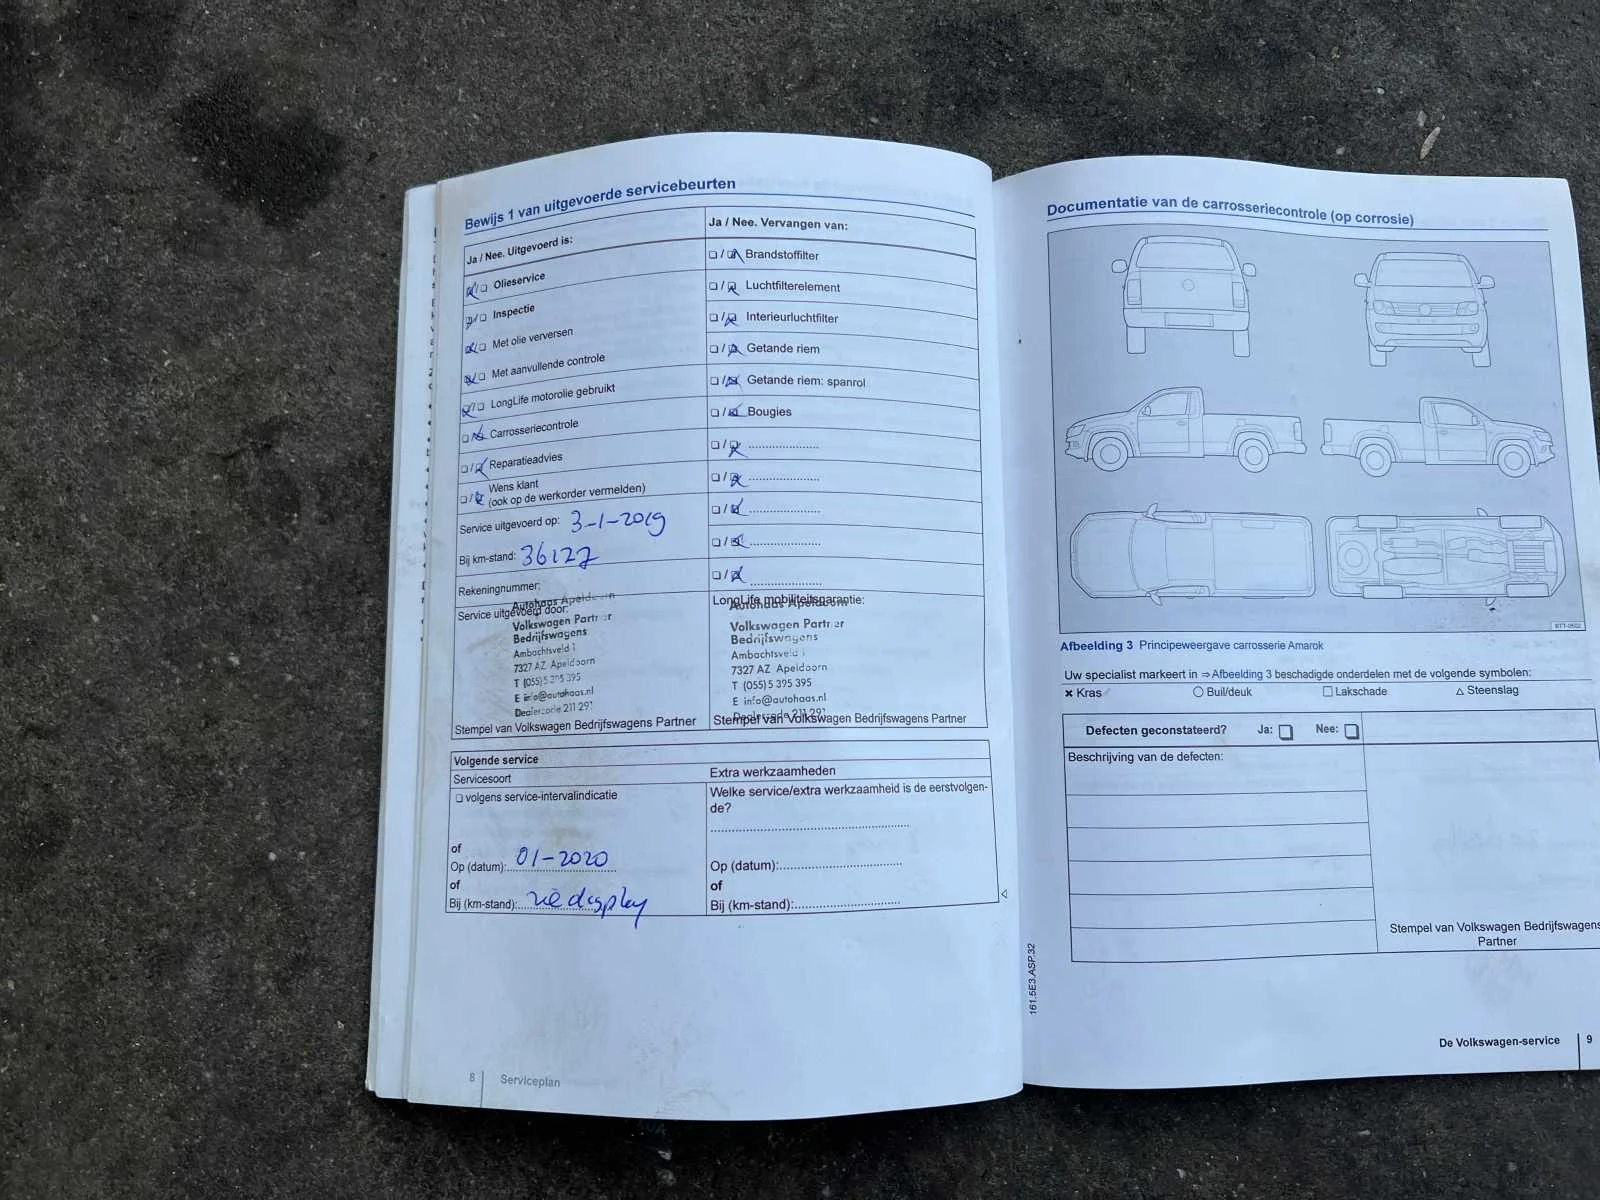 Bewijs 1 van uitgevoerde servicebeurten
Ja / Nee. Uitgevoerd is:
Olieservice
Inspectie
Met olie verversen
Met aanvullende controle
LongLife motorolie gebruikt
Carrosseriecontrole
Reparatieadvies
Wens klant
(ook op de werkorder vermelden)
Service uitgevoerd op: 3-1-2019
Bij km-stand: 36127
Rekeningnummer:
Service uitgevoerd door:
Autohaas Apeldoorn
Volkswagen Partner
Bedrijfswagens
Ambachtsveld 1
7327 AZ Apeldoorn
T (055) 5 395 395
E info@autohaas.nl
Dealercode 211 291
Stempel van Volkswagen Bedrijfswagens Partner
Ja / Nee. Vervangen van:
Brandstoffilter
Luchtfilterelement
Interieurluchtfilter
Getande riem
Getande riem: spanrol
Bougies
LongLife mobiliteitsgarantie:
Autohaas Apeldoorn
Volkswagen Partner
Bedrijfswagens
Ambachtsveld 1
7327 AZ Apeldoorn
T (055) 5 395 395
E info@autohaas.nl
Dealercode 211 291
Stempel van Volkswagen Bedrijfswagens Partner
Volgende service
Servicesoort
volgens service-intervalindicatie
of
Op (datum): 01-2020
of
Bij (km-stand): zie display
Extra werkzaamheden
Welke service/extra werkzaamheid is de eerstvolgen-
de?
Op (datum):
of
Bij (km-stand):
8 Serviceplan
Documentatie van de carrosseriecontrole (op corrosie)
BTT-0502
Afbeelding 3 Principeweergave carrosserie Amarok
Uw specialist markeert in ⇒ Afbeelding 3 beschadigde onderdelen met de volgende symbolen:
× Kras ○ Buil/deuk □ Lakschade △ Steenslag
Defecten geconstateerd? Ja: Nee:
Beschrijving van de defecten:
Stempel van Volkswagen Bedrijfswagens
Partner
161.5E3.ASP.32
De Volkswagen-service 9